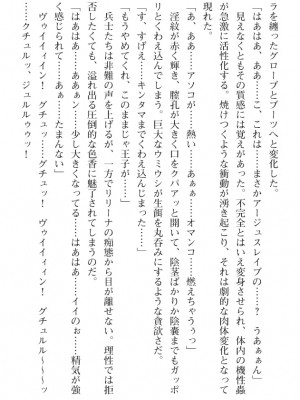 ラを纏ったグローブとブーツへと変化した。
「はぁはぁ、ああ……こ、これは……まさかアージュスレイブの……？　うあぁぁん」
見えなくともその質感には覚えがあった。不完全とはいえ変身させられ、体内の機性蟲
が急激に活性化する。焼けつくような衝動が湧き起こり、それは劇的な肉体変化となって
現れた。
「あ、ああ……アソコが……熱い……あぁぁ……オマンコ……燃えちゃうぅっ」
淫紋が赤く輝き、膣孔が大きく口をクパァッと開いて、陰茎ばかりか陰嚢までもガッポ
リとくわえ込んでしまう。巨大なウミウシが生餌を丸呑みにするような貪欲さだ。
「す、すげえ……キンタマまでくわえ込んじまった……」
「もうやめてくれ、このままじゃ王子が……」
兵士たちは非難の声を上げるが、一方でリリーナの痴態から目が離せない。理性では拒
否したくても、溢れ出る圧倒的な色香に魅了されてしまうのだ。
「はぁはぁ……あぁぁン……少し大きくなってる……はぁはぁ……イイのぉ……精気が強
く感じられて……あぁ……たまんない」
ヴゥイィィィン！　グチュッ……グチュッ！　ヴゥイィィィン！　グチュルル〜〜〜ッ
……クチュルッ、ジュルルゥゥッ！